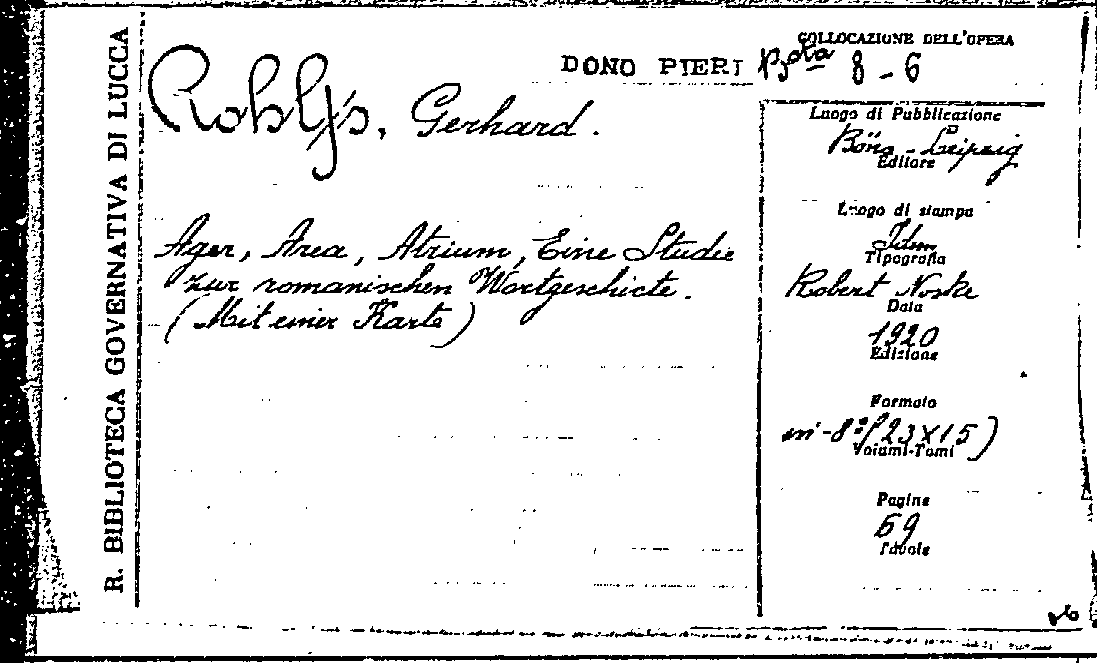 R. BIBLIOTECA GOVERNATIVA DI LUCCA
COLLOCAZIONE DELL'OPERA
DONO PIERI B.ta 8 - 6
Rohlfs, Gerhard.
Ager, Area, Atrium, Eine Studie
zur romanischen Wortgeschicte.
(Mit einer Karte)
Luogo di Pubblicazione
Börna - Leipzig
Editore
Luogo di stampa
Idem
Tipografia
Robert Noske
Data
1920
Edizione
Formato
in-8º (23X15)
Volumi-Tomi
Pagine
69
Tavole